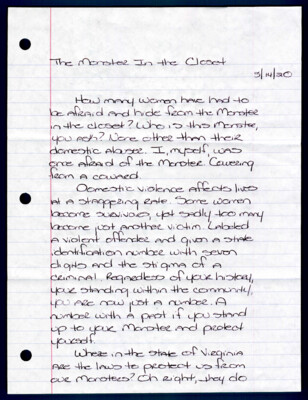 The Monster In the Closet
3/14/20
How many women have had to
be afraid and hide from the Monster
in the closet? Who is this Monster,
you ask? None other than their
domestic abuser. I, myself, was
once afraid of the Monster. Cowering
from a coward.
Domestic violence affects lives
at a staggering rate. Some women
become survivors, yet sadly too many
become just another victim. Labeled
a violent offender and given a state
identification number with seven
digits and the stigma of a
criminal. Regardless of your history,
your standing within the community,
you are now just a number. A
number with a past if you stand
up to your Monster and protect
yourself.
Where in the state of Virginia
are the laws to protect us from
our Monsters? Oh right, they do